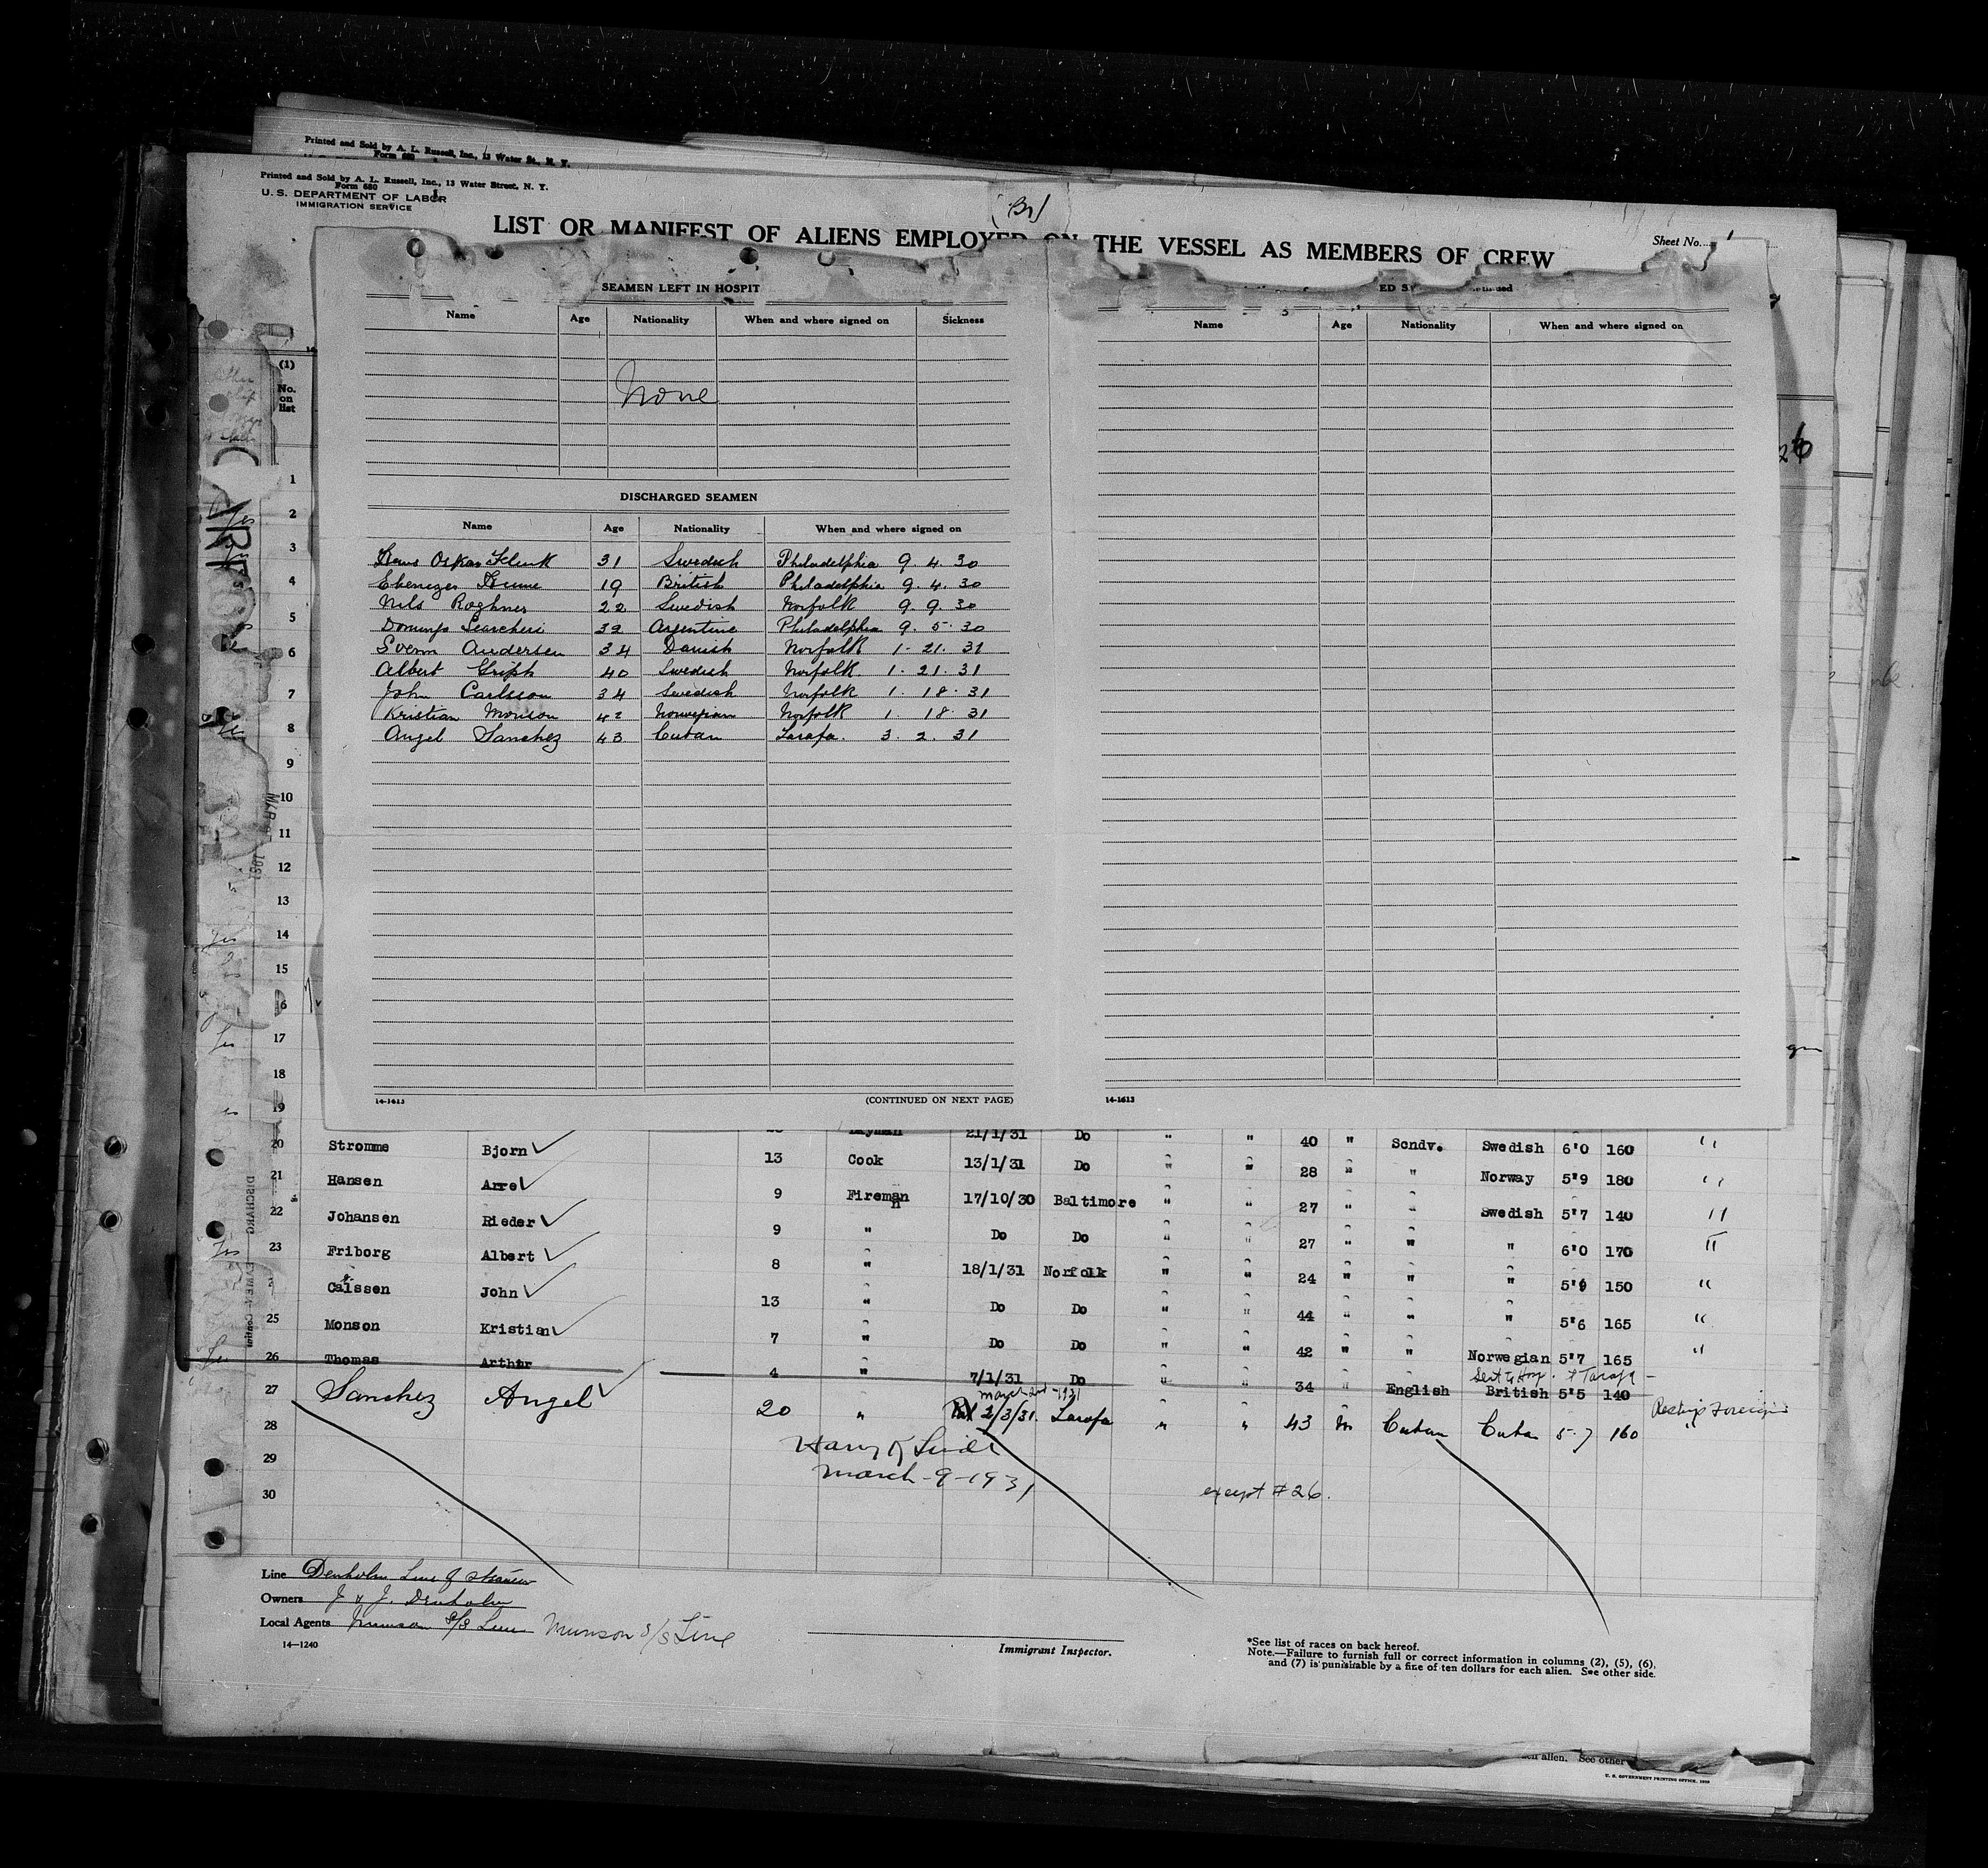 Printed and Sold by A. L. Russell, Inc., 13 Water St., N. Y.
Form 680
Printed and Sold by A. L. Russell, Inc., 13 Water Street, N. Y.
Form 680
U. S. DEPARTMENT OF LABOR
IMMIGRATION SERVICE
(Br)
LIST OR MANIFEST OF ALIENS EMPLOYED ON THE VESSEL AS MEMBERS OF CREW
Sheet No. 1
SEAMEN LEFT IN HOSPIT
Name Age Nationality When and where signed on Sickness
None
DISCHARGED SEAMEN
Name Age Nationality When and where signed on
Oskar 31 Swedish Philadelphia 9. 4. 30
Ebenezer 19 British Philadelphia 9. 4. 30
Nils 22 Swedish Norfolk 9. 9. 30
Domingo 32 Argentine Philadelphia 9. 5. 30
Svenn Andersen 34 Danish Norfolk 1. 21. 31
Albert Griph 40 Swedish Norfolk. 1. 21. 31
John Carlsson 34 Swedish Norfolk 1. 18. 31
Kristian Monson 42 Norwegian Norfolk 1. 18. 31
Angel Sanchez 43 Cuban Tarafa. 3. 2. 31
14-1613
(CONTINUED ON NEXT PAGE)
Name Age Nationality When and where signed on
14-1613
(1)
No.
on
list
1
2
3
4
5
6
7
8
9
10
11
12
13
14
15
16
17
18
19
21/1/31 Do " " 40 " Scndv. Swedish 6'0 160 "
20 Stromme Bjorn 13 Cook 13/1/31 Do " " 28 " " Norway 5'9 180 "
21 Hansen Arre 9 Fireman 17/10/30 Baltimore " " 27 " " Swedish 5'7 140 "
22 Johansen Rieder 9 " Do Do " " 27 " " " 6'0 170 "
23 Friborg Albert 8 " 18/1/31 Norfolk " " 24 " " " 5'9 150 "
Calssen John 13 " Do Do " " 44 " " " 5'6 165 "
25 Monson Kristian 7 " Do Do " " 42 " " Norwegian 5'7 165 "
Sent to Hosp. at Tarafa
26 Thomas Arthur 4 " 7/1/31 Do " " 34 " English British 5'5 140
March 2nd - 1931
27 Sanchez Angel 20 " 2/3/31. Tarafa " " 43 m Cuban Cuba 5.7 160 "
28
29
30
Harry
March-9-1931
except #26.
Line Denholm Line of Steamers
Owners J & J. Denholm
Local Agents Munson S/S Line Munson S/S Line
14—1240
Immigrant Inspector.
*See list of races on back hereof.
Note.—Failure to furnish full or correct information in columns (2), (5), (6),
and (7) is punishable by a fine of ten dollars for each alien. See other side.
alien. See other
U. S. GOVERNMENT PRINTING OFFICE